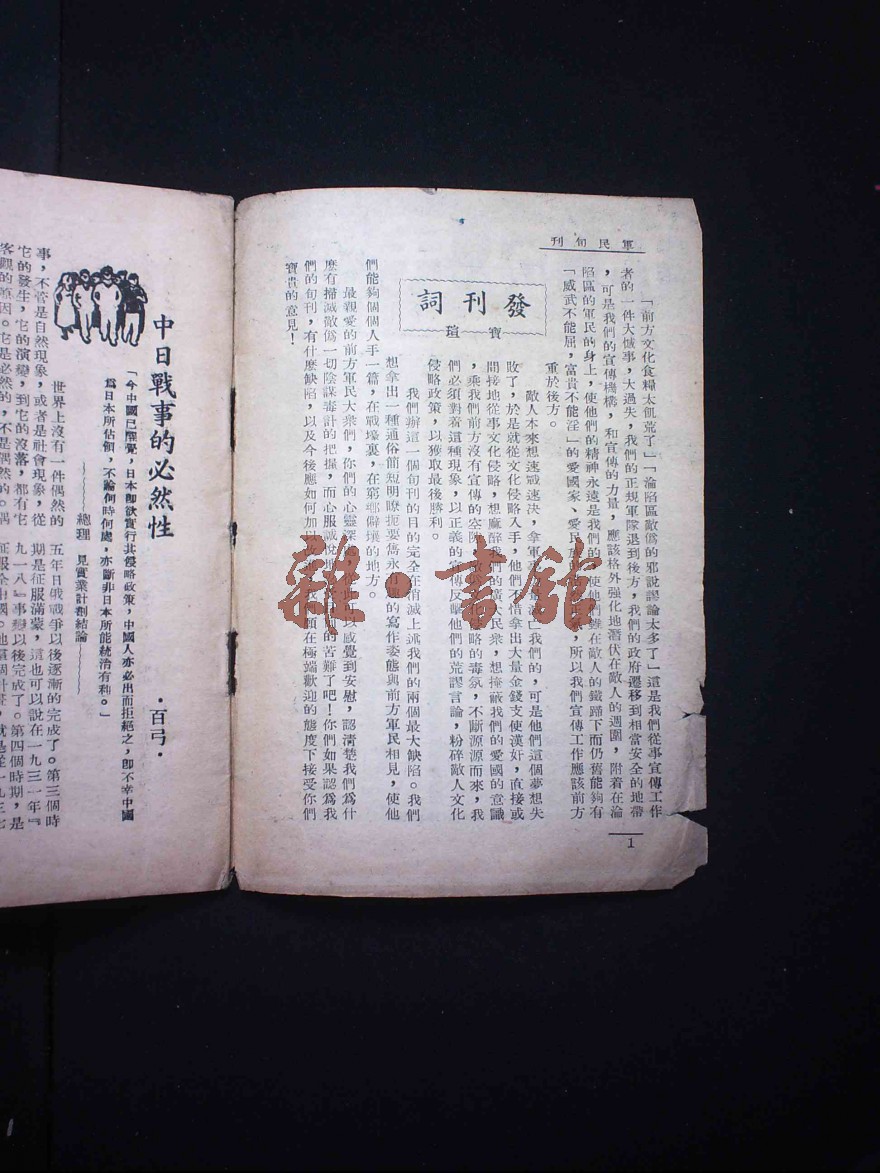 軍民旬刊
1
發刊詞
寶瑄
「前方文化食糧太飢荒了」「淪陷區敵僞的邪說謬論太多了」這是我們從事宣傳工作
者的一件大憾事,大過失,我們的正規軍隊退到後方,我們的政府遷移到相當安全的地帶
,可是我們的宣傳機構,和宣傳的力量,應該格外強化地潛伏在敵人的週圍,附着在淪
陷區的軍民的身上,使他們的精神永遠是我們的,使他們雖在敵人的鐵蹄下而仍舊能夠有
「威武不能屈,富貴不能淫」的愛國家、愛民族,所以我們宣傳工作應該前方
重於後方。
敵人本來想速戰速決,拿軍亡我們的,可是他們這個夢想失
敗了,於是就從文化侵略入手,他們不惜拿出大量金錢支使漢奸,直接或
間接地從事文化侵略,想麻醉我們的廣大民衆,想掩蔽我們的愛國的意識
,乘我們前方沒有宣傳的空隙,略的毒氛,不斷源源而來,我
們必須對着這種現象,以正義的宣傳反擊他們的荒謬言論,粉碎敵人文化
侵略政策,以獲取最後勝利。
我們辦這一個旬刊的目的完全在消滅上述我們的兩個最大缺陷。我們
想拿出一種通俗簡短明瞭扼要雋永有的寫作姿態與前方軍民相見,使他
們能夠個個人手一篇,在戰壕裏,在窮鄉僻壤的地方。
最親愛的前方軍民大衆們,你們的心靈深處以感覺到安慰,認清楚我們爲什
麼有掃滅敵僞一切陰謀毒計的把握,而心服誠悅的苦難了吧!你們如果認爲我
們的旬刊,有什麼缺陷,以及今後應如何加以願在極端歡迎的態度下接受你們
寶貴的意見!
中日戰事的必然性
·百弓·
「今中國已醒覺,日本卽欲實行其侵略政策,中國人亦必出而拒絕之,卽不幸中國
爲日本所佔領,不論何時何處,亦斷非日本所能統治有利。」
總理 見實業計劃結論
世界上沒有一件偶然的
事,不管是自然現象,或者是社會現象,從
它的發生,它的演變,到它的沒落,都有它
客觀的原因。它是必然的,不是偶然的。
五年日俄戰爭以後逐漸的完成了。第三個時
期是征服滿蒙,這也可以說在一九三一年『
九一八』事變以後完成了。第四個時期,是
雜·書館